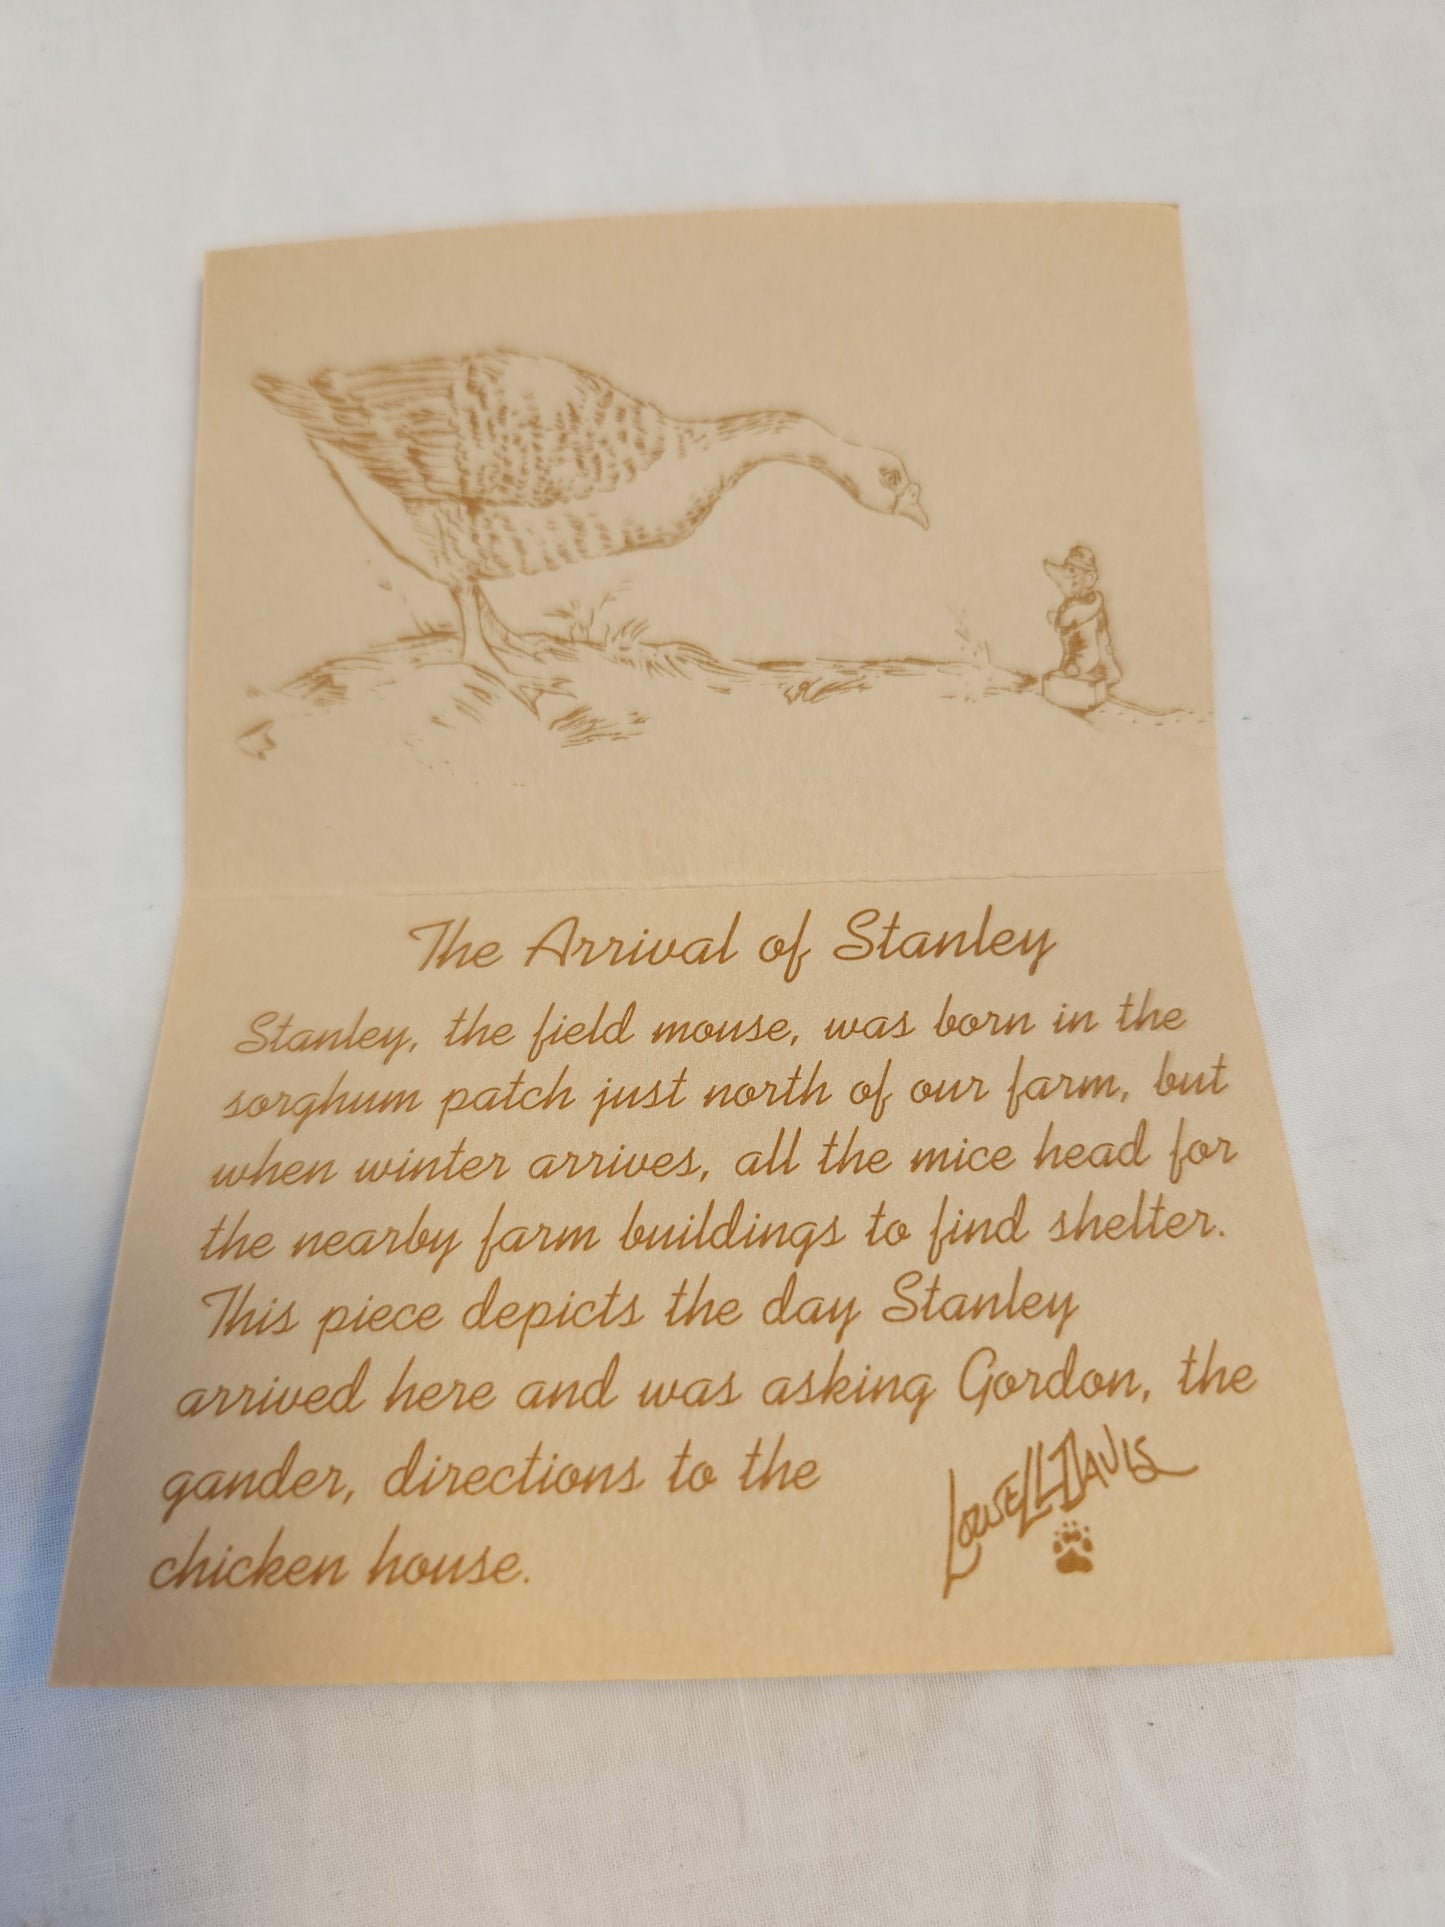 The Arrival of Stanley
Stanley, the field mouse, was born in the
sorghum patch just north of our farm, but
when winter arrives, all the mice head for
the nearby farm buildings to find shelter.
This piece depicts the day Stanley
arrived here and was asking Gordon, the
gander, directions to the
chicken house.
Lowell Davis